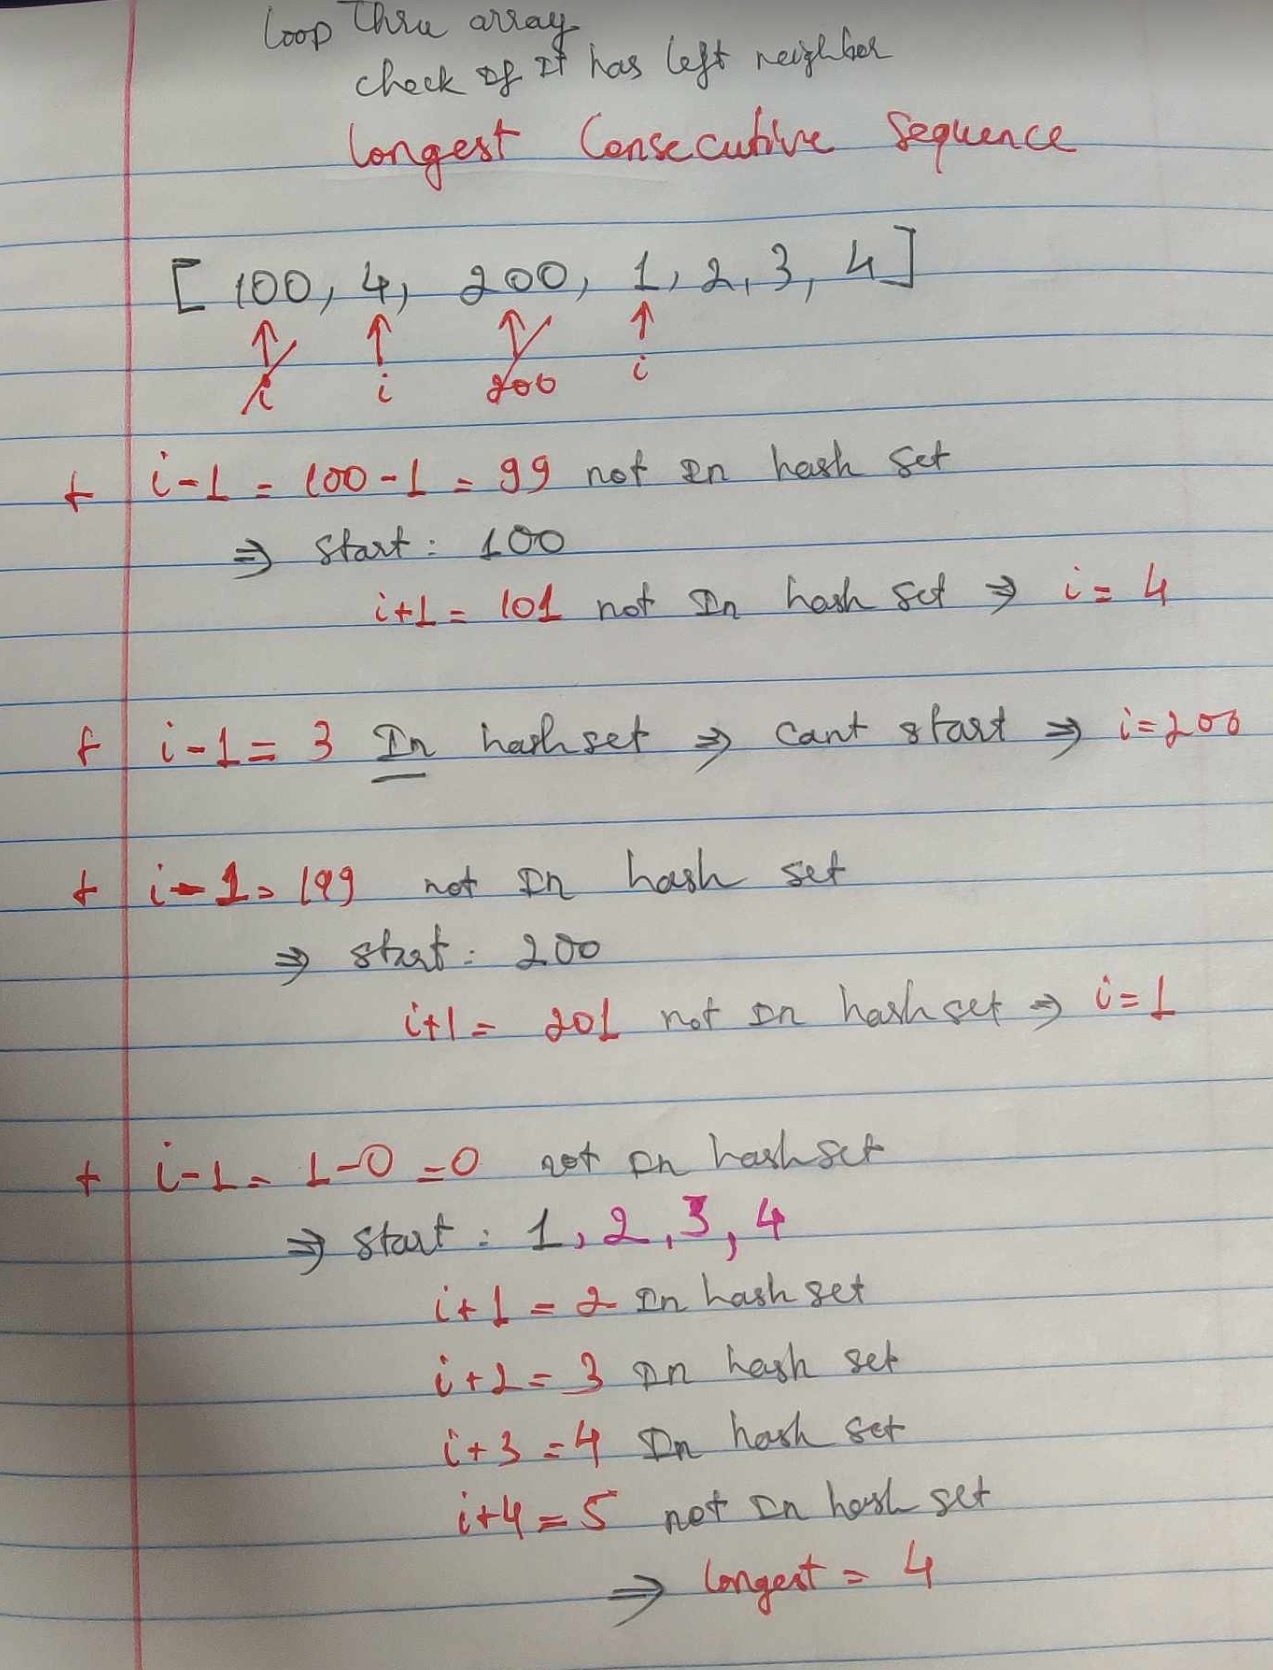 loop thru array
check If It has left neighbor
Longest Consecutive Sequence
[ 100, 4, 200, 1, 2, 3, 4 ]
i i 200 i
+ i-1 = 100-1 = 99 not In hash set
⇒ start: 100
i+1 = 101 not In hash set ⇒ i = 4
+ i-1 = 3 In hashset ⇒ cant start ⇒ i=200
+ i-1 = 199 not In hash set
⇒ start: 200
i+1 = 201 not In hashset ⇒ i=1
+ i-1 = 1-0 = 0 not In hashset
⇒ start: 1, 2, 3, 4
i+1 = 2 In hash set
i+2 = 3 In hash set
i+3 = 4 In hash set
i+4 = 5 not In hash set
⇒ longest = 4